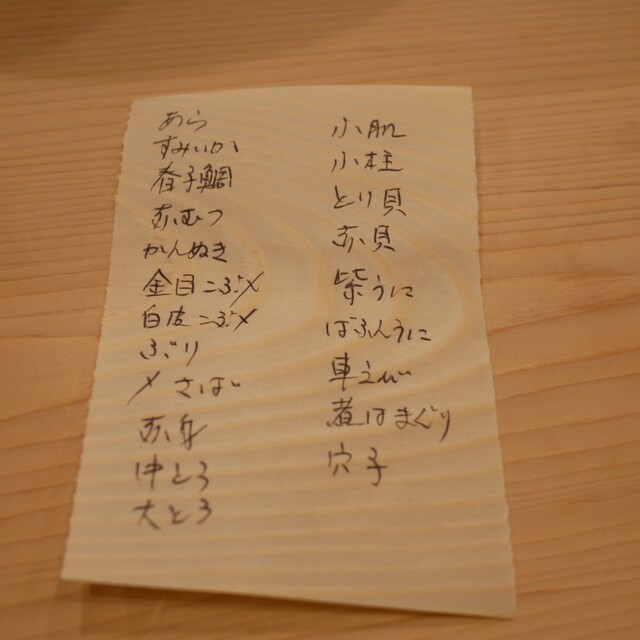 あら
すみいか
春子鯛
赤むつ
かんぬき
金目こぶ〆
白皮こぶ〆
ぶり
〆さば
赤身
中とろ
大とろ
小肌
小柱
とり貝
赤貝
紫うに
ばふんうに
車えび
煮はまぐり
穴子